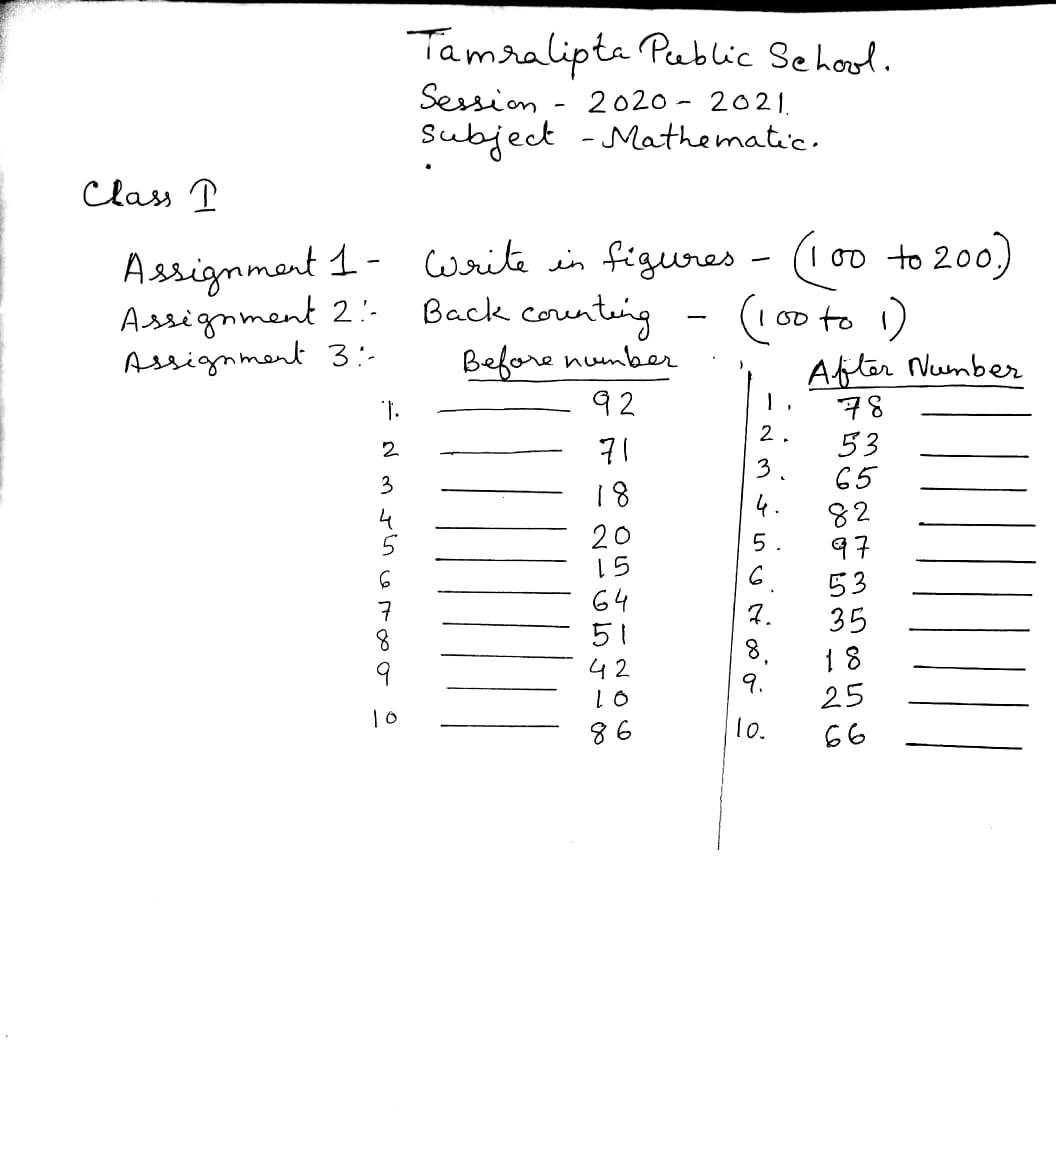 Tamralipta Public School.
Session - 2020 - 2021.
Subject - Mathematic.
Class I
Assignment 1 - Write in figures - (100 to 200.)
Assignment 2 :- Back counting - (100 to 1)
Assignment 3 :- Before number After Number
1. ____ 92 1. 78 ____
2 ____ 71 2. 53 ____
3 ____ 18 3. 65 ____
4 ____ 20 4. 82 ____
5 ____ 15 5. 97 ____
6 ____ 64 6. 53 ____
7 ____ 51 7. 35 ____
8 ____ 42 8. 18 ____
9 ____ 10 9. 25 ____
10 ____ 86 10. 66 ____